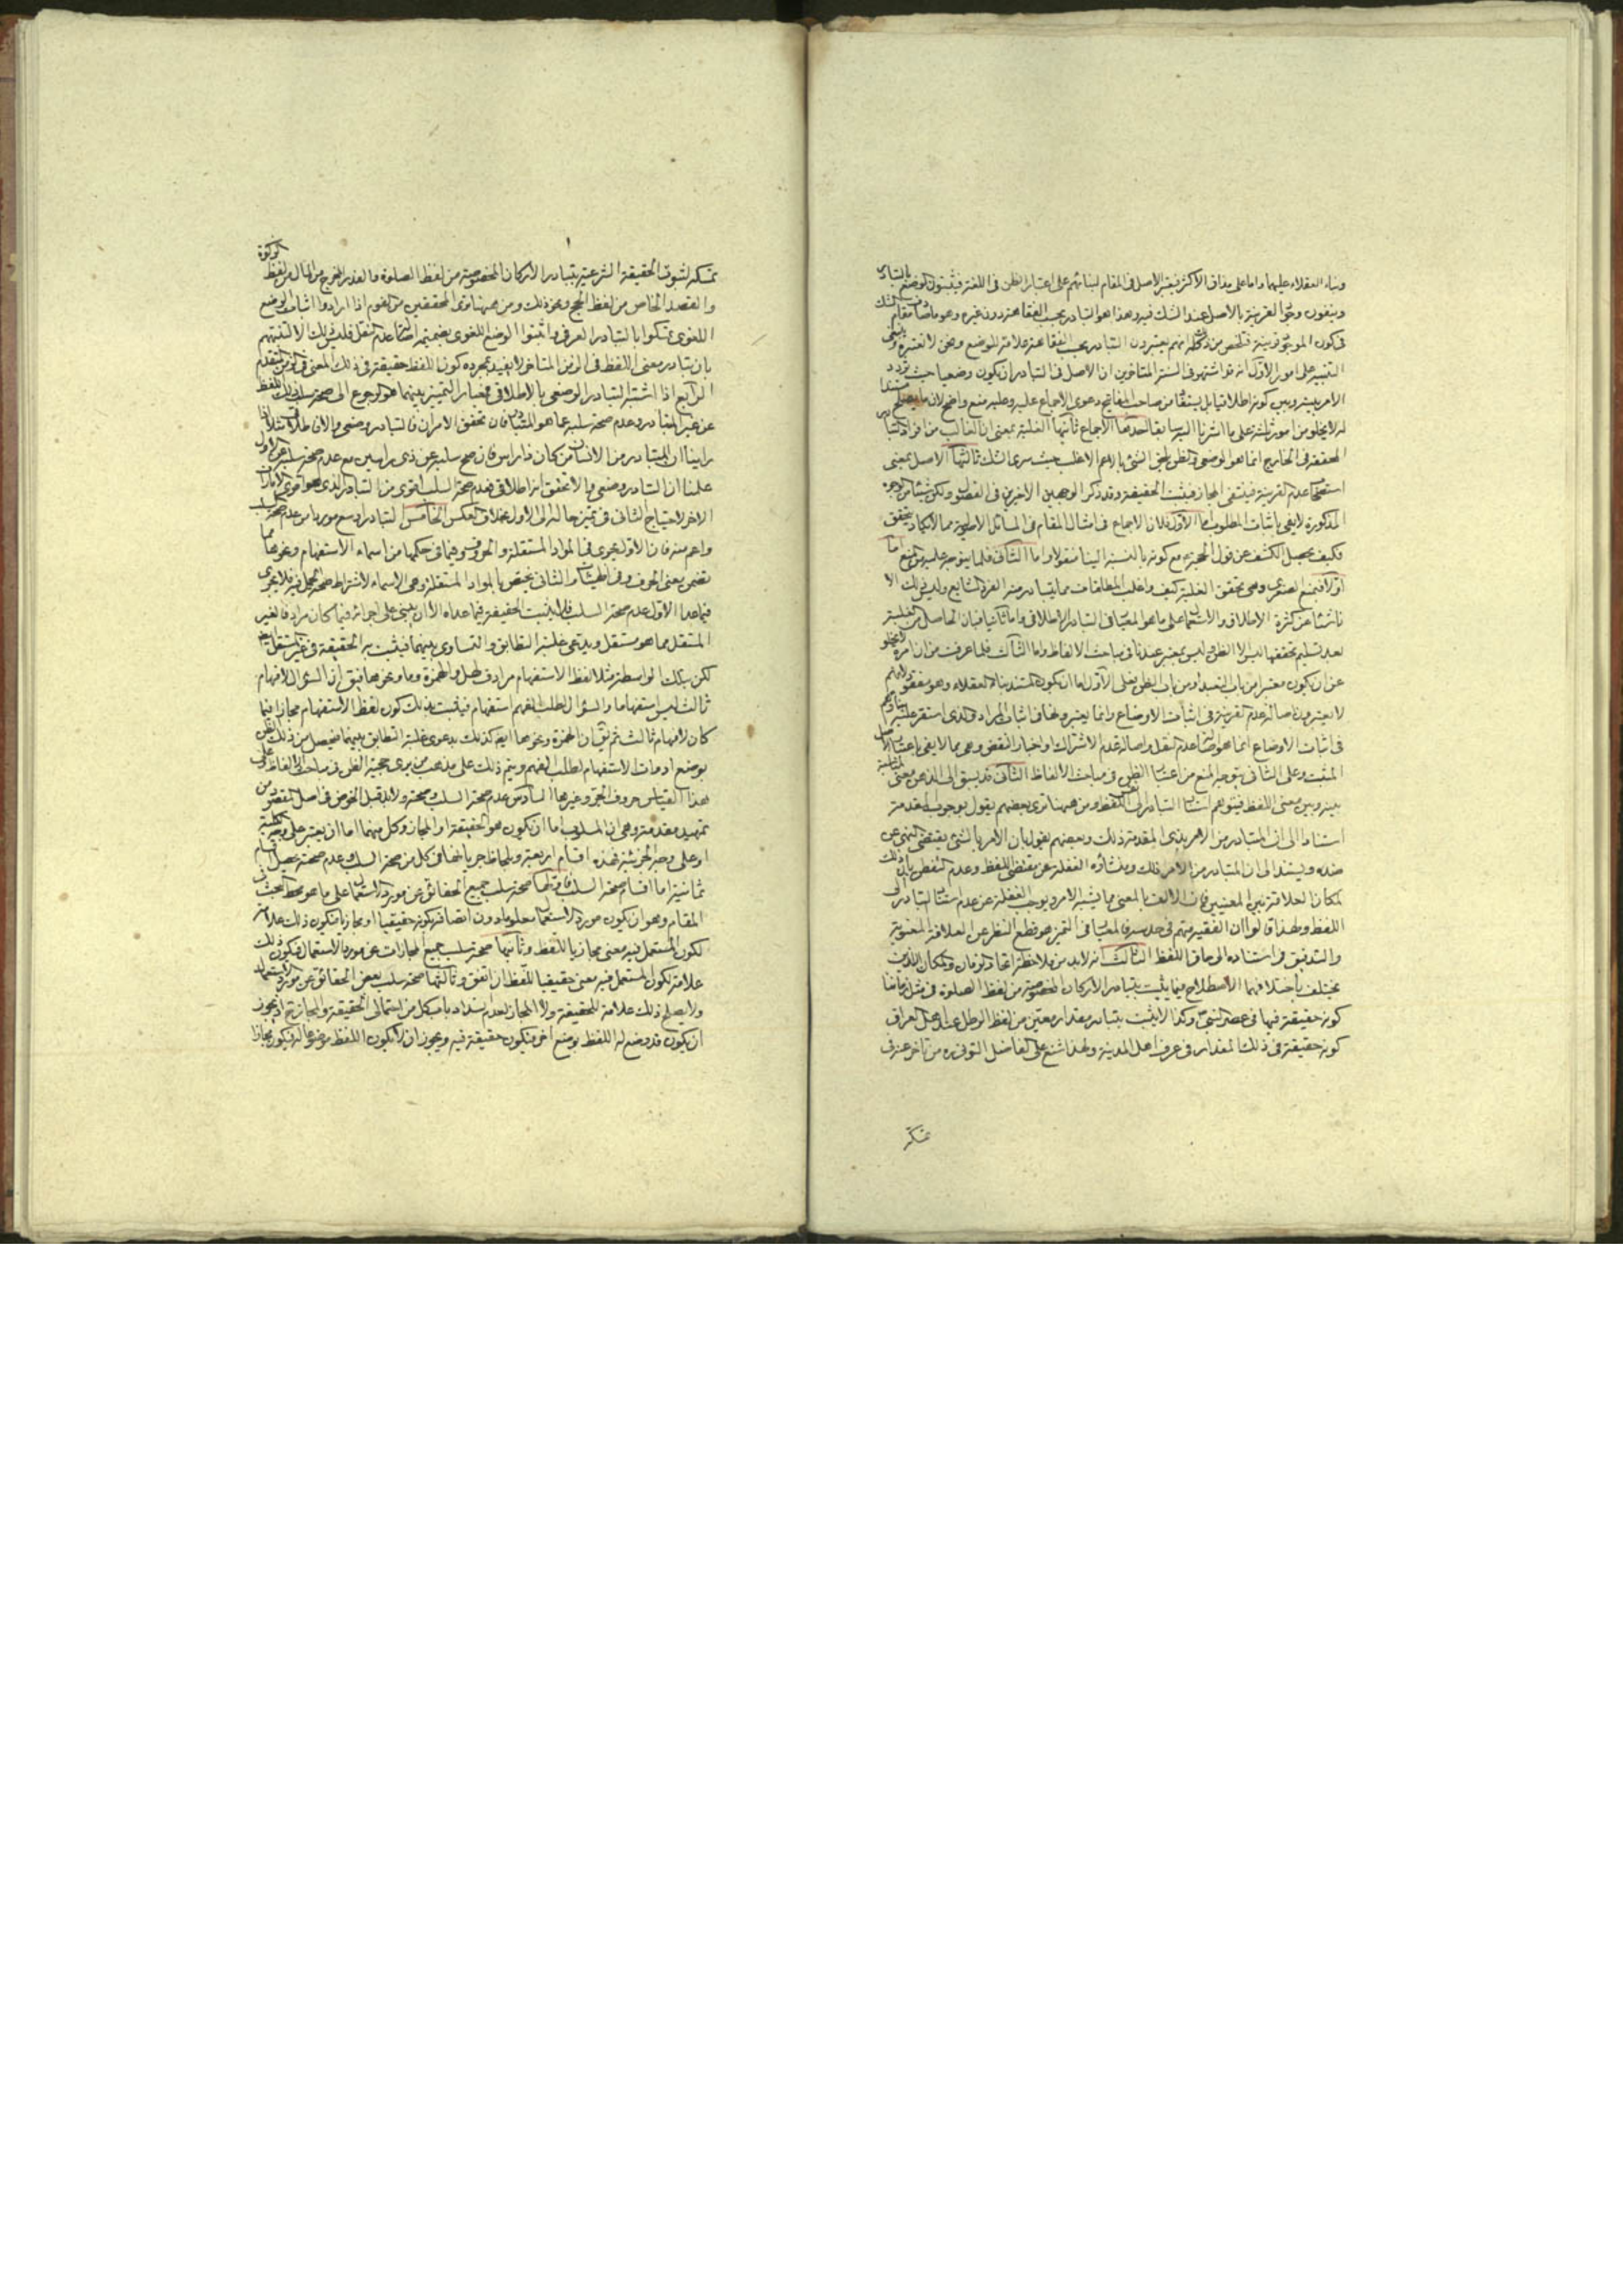 وبناء العقلاء عليهما واما على مذاق الاكثر فيعتبر الاصل في المقام لبنائهم على اعتبار الظن في اللغة فيثبتون الوضع بالتبادر
وينفون القرينة بالاصل عند الشك فيه وهذا هو التبادر بحسب الفقاهة دون غيره وهو ما مقام
في كون الموجود قرينة فتلخص من ذلك انهم يعتبرون التبادر بحسب الفقاهة علامة للوضع ونحن لا نعتبره
التنبيه على امور الاول انه قد اشتهر في السنة المتاخرين ان الاصل في التبادر ان يكون وضعيا حيث تردد
الامر بينه وبين كونه اطلاقيا بل يستفاد من صاحب المفاتيح دعوى الاجماع عليه وعليه منع واضح لان ما يصلح مستندا
له لا يخلو من امور ثلثة على ما اشرنا اليه سابقا احدها الاجماع ثانيها الغلبة بمعنى ان الغالب من افراد التبادر
المحققة في الخارج انما هو الوضعي والظن يلحق الشيء بالاعم الاغلب حيث سرى الشك ثالثها الاصل بمعنى
استصحاب عدم القرينة فينتفى المجاز فيثبت الحقيقة وقد ذكر الوجهين الاخيرين في الفصول ولكن شيئا من الوجوه
المذكورة لا يفي باثبات المطلوب اما الاول فلان الاجماع في امثال المقام في المسائل الاصولية مما لا يكاد يتحقق
فكيف يحصل الكشف عن قول الحجة مع كونه بالنسبة الينا منقولا واما الثاني فلما يتوجه عليه من المنع اما
اولا فبمنع الصغرى وهي تحقق الغلبة كيف واغلب المطلقات مما يتبادر منه الفرد الشايع وليس ذلك الا
ناشئا عن كثرة الاطلاق والاستعمال على ما هو المعيار في التبادر الاطلاقي واما ثانيا فبان الحاصل من الغلبة
بعد تسليم تحققها ليس الا الظن وليس بمعتبر عندنا في مباحث الالفاظ واما الثالث فلما عرفت من ان امره لا يخلو
عن ان يكون معتبرا من باب التعبد او من باب الظن فعلى الاول اما ان يكون المستند بناء العقلاء وهو مفقود لانهم
لا يعتبرون اصالة عدم القرينة في اثبات الاوضاع وانما يعتبرونها في اثبات المراد فالذي استقر عليه بناؤهم
في اثبات الاوضاع انما هو اصالة عدم النقل واصالة عدم الاشتراك او اخبار النقض وهي مما لا يفي باعتبار الاصل
المثبت وعلى الثاني يتوجه المنع من اعتبار الظن في مباحث الالفاظ الثاني قد يسبق الى الذهن معنى
بينه وبين معنى اللفظ فيتوهم استناد التبادر الى اللفظ ومن هيهنا ترى بعضهم يقول بوجوب المقدمة
استنادا الى ان المتبادر من الامر بذي المقدمة ذلك وبعضهم يقول بان الامر بالشيء يقتضي النهي عن
ضده ويستند الى ان المتبادر من الامر ذلك ومنشاؤه الغفلة عن مقتضى اللفظ وعدم التفطن بان ذلك
لمكان العلاقة بين المعنيين فان الالف بالمعنى مما يشبه الامر ويوجب الغفلة عن عدم استناد التبادر الى
اللفظ ولهذا قالوا ان الفقيه متهم في حدسه فالمعيار في التميز هو قطع النظر عن العلاقة المعنوية
والتدقيق في استناده الى حاق اللفظ الثالث انه لابد من ملاحظة اتحاد الزمان والمكان اللذين
يختلف باختلافهما الاصطلاح فيما يثبت بتبادر الاركان المخصوصة من لفظ الصلوة في مثل زماننا
كونه حقيقة فيها في عصر النبي وكذا لا يثبت بتبادر مقدار معين من لفظ الرطل عند اهل العراق
كونه حقيقة في ذلك المقدار في عرف اهل المدينة ولهذا شنع على الفاضل التوني ره من تاخر عنه في
تمسكه
تمسكه لثبوت الحقيقة الشرعية بتبادر الاركان المخصوصة من لفظ الصلوة والقدر المخرج من المال من لفظ الزكوة
والقصد الخاص من لفظ الحج ونحو ذلك ومن هيهنا ترى المحققين من القوم اذا ارادوا اثبات الوضع
اللغوي تمسكوا بالتبادر العرفي واثبتوا الوضع اللغوي بضميمة اصالة عدم النقل فليس ذلك الا لتنبههم
بان تبادر معنى اللفظ في الزمن المتاخر لا يفيد بمجرده كون اللفظ حقيقة في ذلك المعنى في الزمن المتقدم
الرابع اذا اشتبه التبادر الوضعي بالاطلاقي فمعيار التميز بينهما هو الرجوع الى صحة سلب ذلك اللفظ
عن غير المتبادر وعدم صحة سلبه عما هو المتبادر فان تحقق الامران فالتبادر وضعي والا فاطلاقي مثلا اذا
راينا ان المتبادر من الانسان من كان ذا راس فان صح سلبه عن ذي راسين مع عدم صحة سلبه عن الاول
علمنا ان التبادر وضعي والا تحقق انه اطلاقي فعدم صحة السلب اقوى من التبادر الذي هو اقوى الامارات
الاخر لاحتياج الثاني في تميز حاله الى الاول بخلاف العكس الخامس التبادر اوسع موردا من عدم صحة السلب
واعم منه فان الاول يجري في المواد المستقلة والحروف وفيما في حكمها من اسماء الاستفهام ونحوها مما
تضمن معنى الحرف وفي الهيئات والثاني يختص بالمواد المستقلة وهي الاسماء لاشتراط صحة الحمل فيه فلا يجري
فيما عدا الاول عدم صحة السلب فلا يثبت الحقيقة فيما عداه الا ان يبنى على اجرائه فيما كان مرادفا لغير
المستقل مما هو مستقل ويدعى غلبة التطابق والتساوي بينهما فيثبت به الحقيقة في غير المستقل
لكن بتلك الواسطة مثلا لفظ الاستفهام مرادف لهل والهمزة وما ونحوها فيق ان السؤال لافهام
ثالث ليس استفهاما والسؤال لطلب الفهم استفهام فيثبت بذلك كون لفظ الاستفهام مجازا فيما
كان لافهام ثالث ثم يق ان الهمزة ونحوها ايضا كذلك بدعوى غلبة التطابق بينهما فيحصل من ذلك الظن
بوضع ادوات الاستفهام لطلب الفهم ويتم ذلك على مذهب من يرى حجية الظن في مباحث الالفاظ وعلى
هذا القياس حروف الجر وغيرها السادس عدم صحة السلب وصحته ولابد قبل الخوض في اصل المقصود من
تمهيد مقدمة وهي ان المسلوب اما ان يكون هو الحقيقة او المجاز وكل منهما اما ان يعتبر على وجه الكلية
او على وجه الجزئية فهذه اقسام اربعة وبلحاظ جريانها في كل من صحة السلب وعدم صحته يحصل اقسام
ثمانية اما اقسام صحة السلب فاولها صحة سلب جميع الحقائق عن مورد الاستعمال على ما هو محط البحث في
المقام وهو ان يكون مورد الاستعمال معلوما دون اتصافه بكونه حقيقيا او مجازيا فيكون ذلك علامة
لكون المستعمل فيه معنى مجازيا للفظ وثانيها صحة سلب جميع المجازات عن مورد الاستعمال فيكون ذلك
علامة لكون المستعمل فيه معنى حقيقيا للفظ ان اتفق وثالثها صحة سلب بعض الحقائق عن مورد الاستعمال
ولا يصلح ذلك علامة للحقيقة ولا المجاز لعدم انسداد باب كل من احتمالي الحقيقة والمجاز ح اذ يجوز
ان يكون قد وضع له اللفظ بوضع اخر فيكون حقيقة فيه ويجوز ان لا يكون اللفظ موضوعا له فيكون مجازا